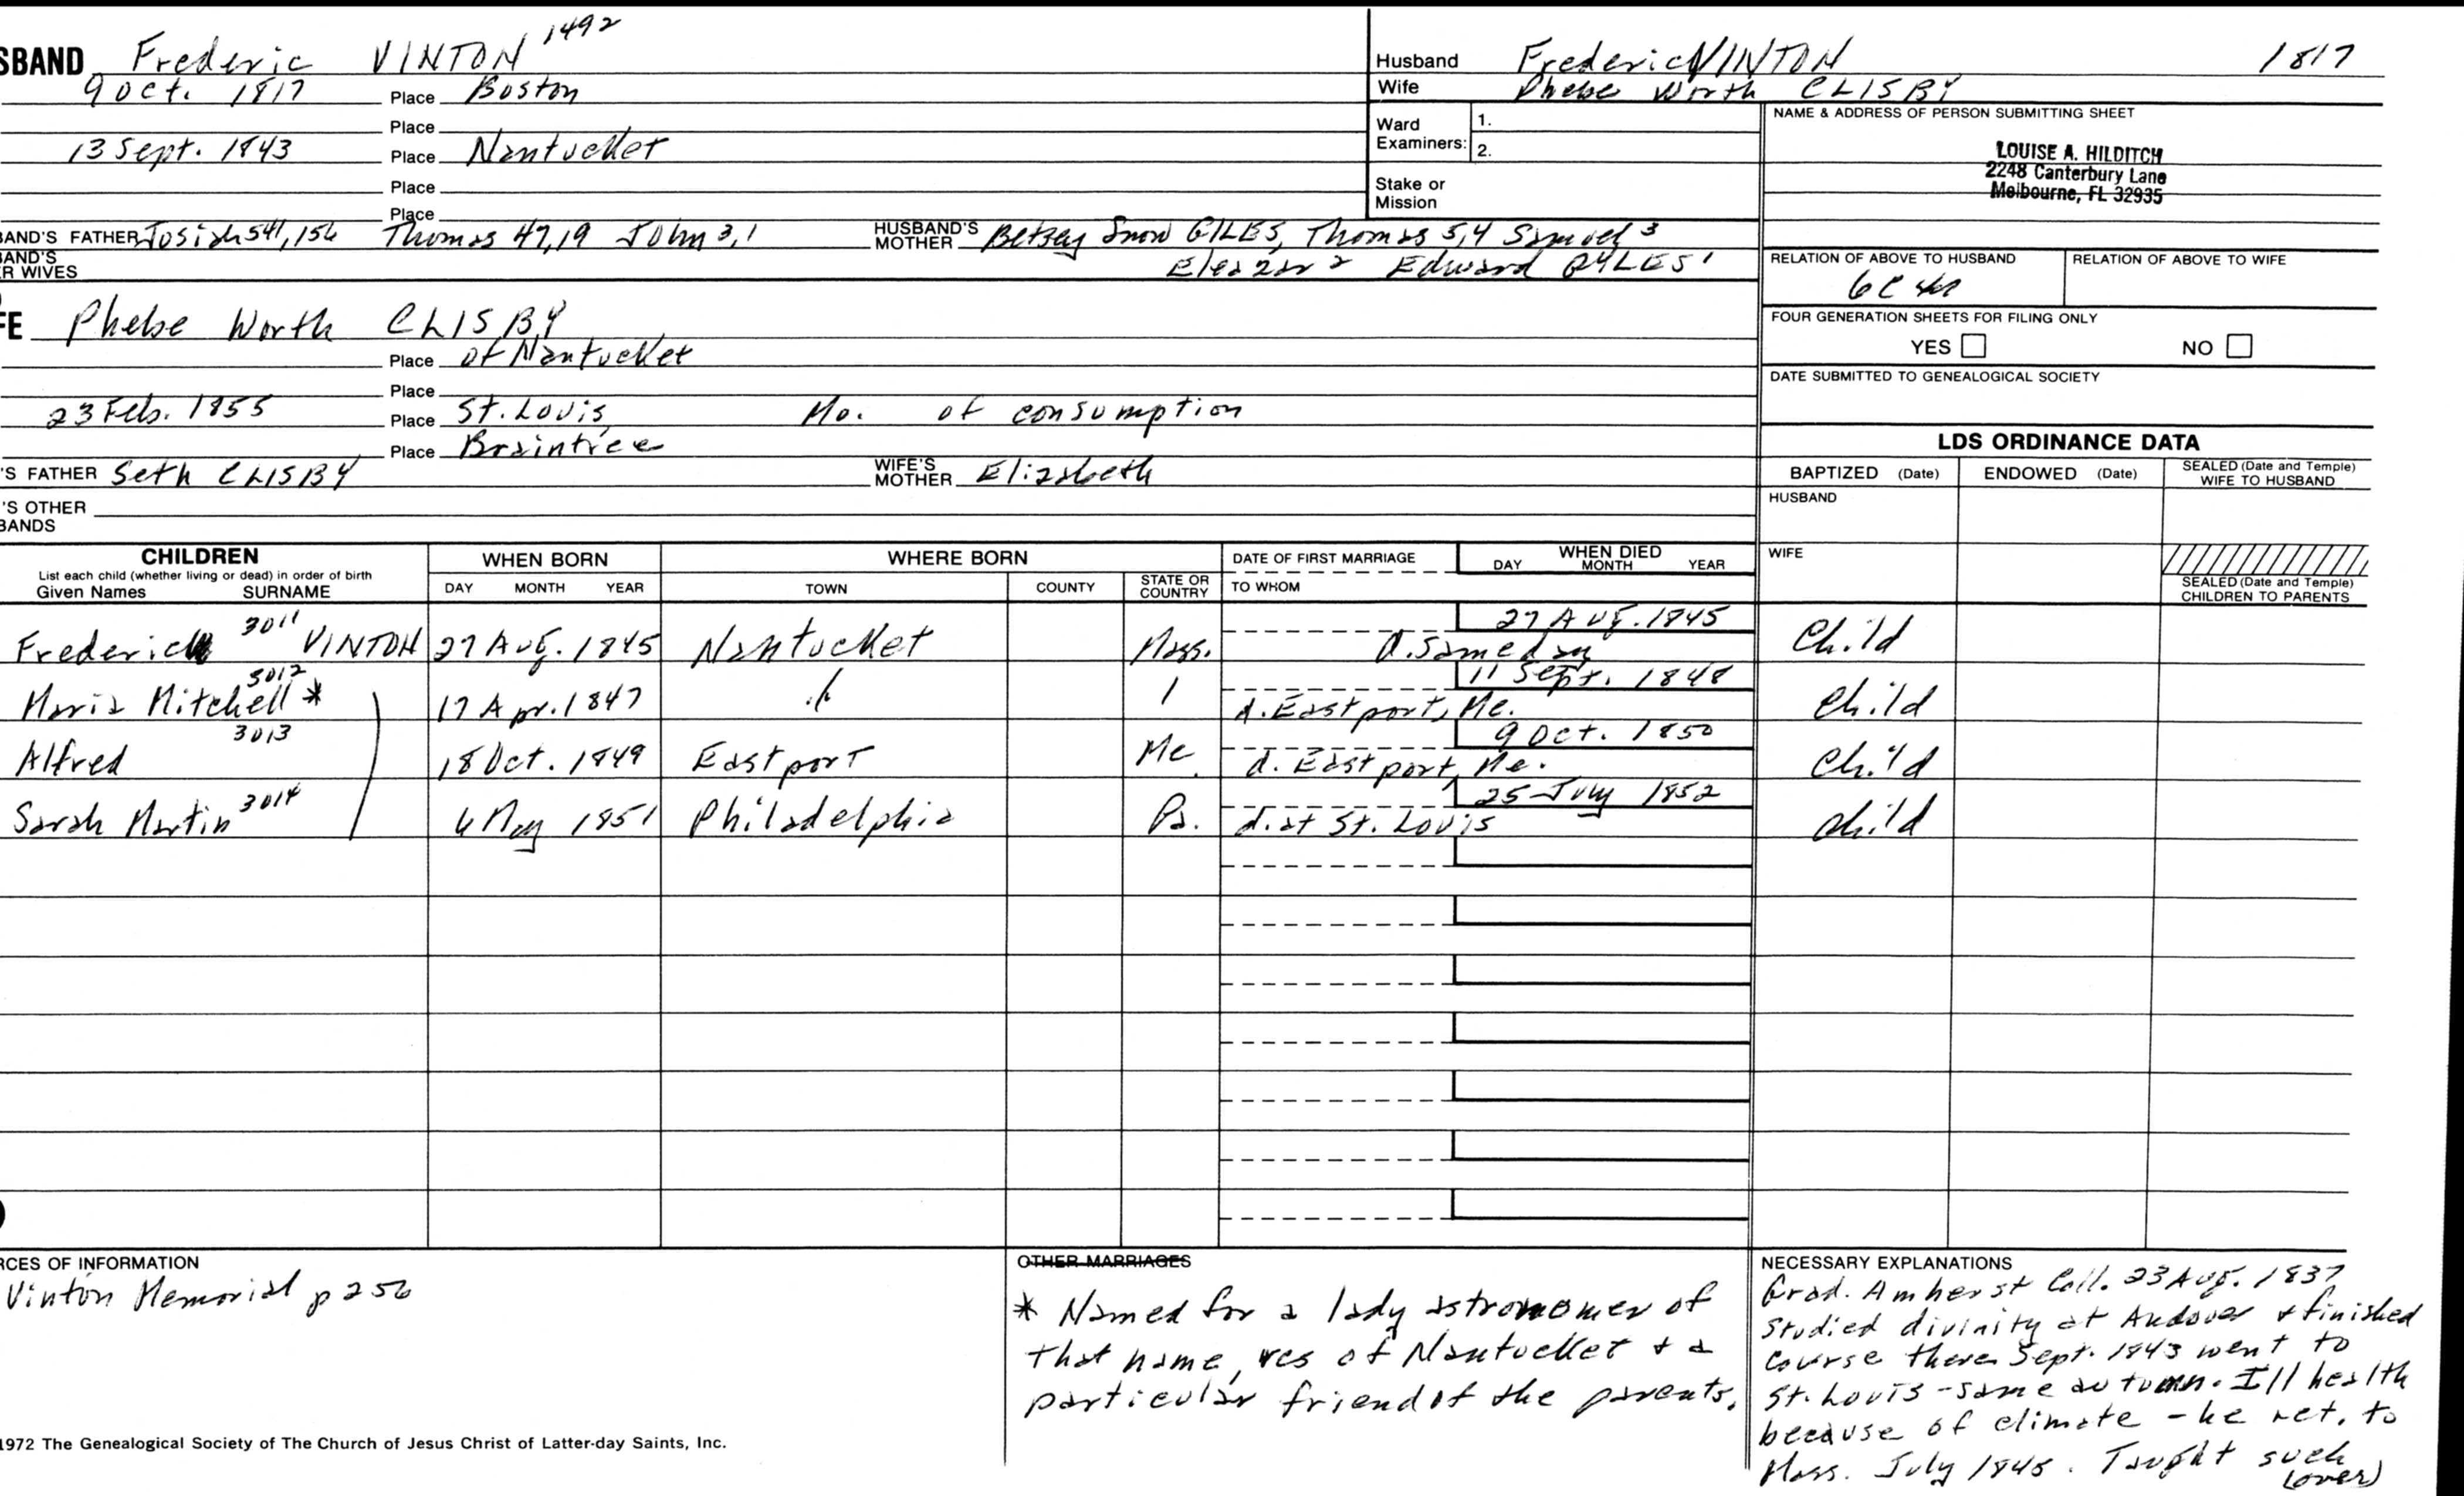 SBAND Frederic VINTON 1492
9 Oct. 1817 Place Boston
Place
13 Sept. 1843 Place Nantucket
Place
Place
BAND'S FATHER Josiah 541, 156 Thomas 47, 19 John 3, 1 HUSBAND'S MOTHER Betsey Snow GILES, Thomas 5,4 Samuel 3
BAND'S
R WIVES
Eleazar 2 Edward GYLES 1
FE Phebe Worth CLISBY
Place of Nantucket
Place
23 Feb. 1855 Place St. Louis, Mo. of consumption
Place Braintree
'S FATHER Seth CLISBY WIFE'S MOTHER Elizabeth
'S OTHER
BANDS
Husband Frederic VINTON 1817
Wife Phebe Worth CLISBY
Ward Examiners: 1.
2.
Stake or Mission
NAME & ADDRESS OF PERSON SUBMITTING SHEET
LOUISE A. HILDITCH
2248 Canterbury Lane
Melbourne, FL 32935
RELATION OF ABOVE TO HUSBAND RELATION OF ABOVE TO WIFE
6C
FOUR GENERATION SHEETS FOR FILING ONLY
YES NO
DATE SUBMITTED TO GENEALOGICAL SOCIETY
LDS ORDINANCE DATA
BAPTIZED (Date) ENDOWED (Date) SEALED (Date and Temple) WIFE TO HUSBAND
HUSBAND
WIFE
SEALED (Date and Temple) CHILDREN TO PARENTS
CHILDREN WHEN BORN WHERE BORN DATE OF FIRST MARRIAGE WHEN DIED
List each child (whether living or dead) in order of birth
Given Names SURNAME DAY MONTH YEAR TOWN COUNTY STATE OR COUNTRY TO WHOM DAY MONTH YEAR
27 Aug. 1845
Frederick 3011 VINTON 27 Aug. 1845 Nantucket Mass. d. same day Child
11 Sept. 1848
Maria Mitchell * 3012 17 Apr. 1847 d. Eastport, Me. Child
9 Oct. 1850
Alfred 3013 18 Oct. 1849 Eastport Me d. Eastport, Me. Child
25 July 1852
Sarah Martin 3014 6 May 1851 Philadelphia Pa. d. at St. Louis child
RCES OF INFORMATION
Vinton Memorial p 250
OTHER MARRIAGES
* Named for a lady astronomer of
that name, res of Nantucket + a
particular friend of the parents.
NECESSARY EXPLANATIONS
Grad. Amherst Coll. 23 Aug. 1837
studied divinity at Andover + finished
course there Sept. 1843 went to
St. Louis - same autumn. Ill health
because of climate - he ret. to
Mass. July 1845. Taught such
(over)
1972 The Genealogical Society of The Church of Jesus Christ of Latter-day Saints, Inc.